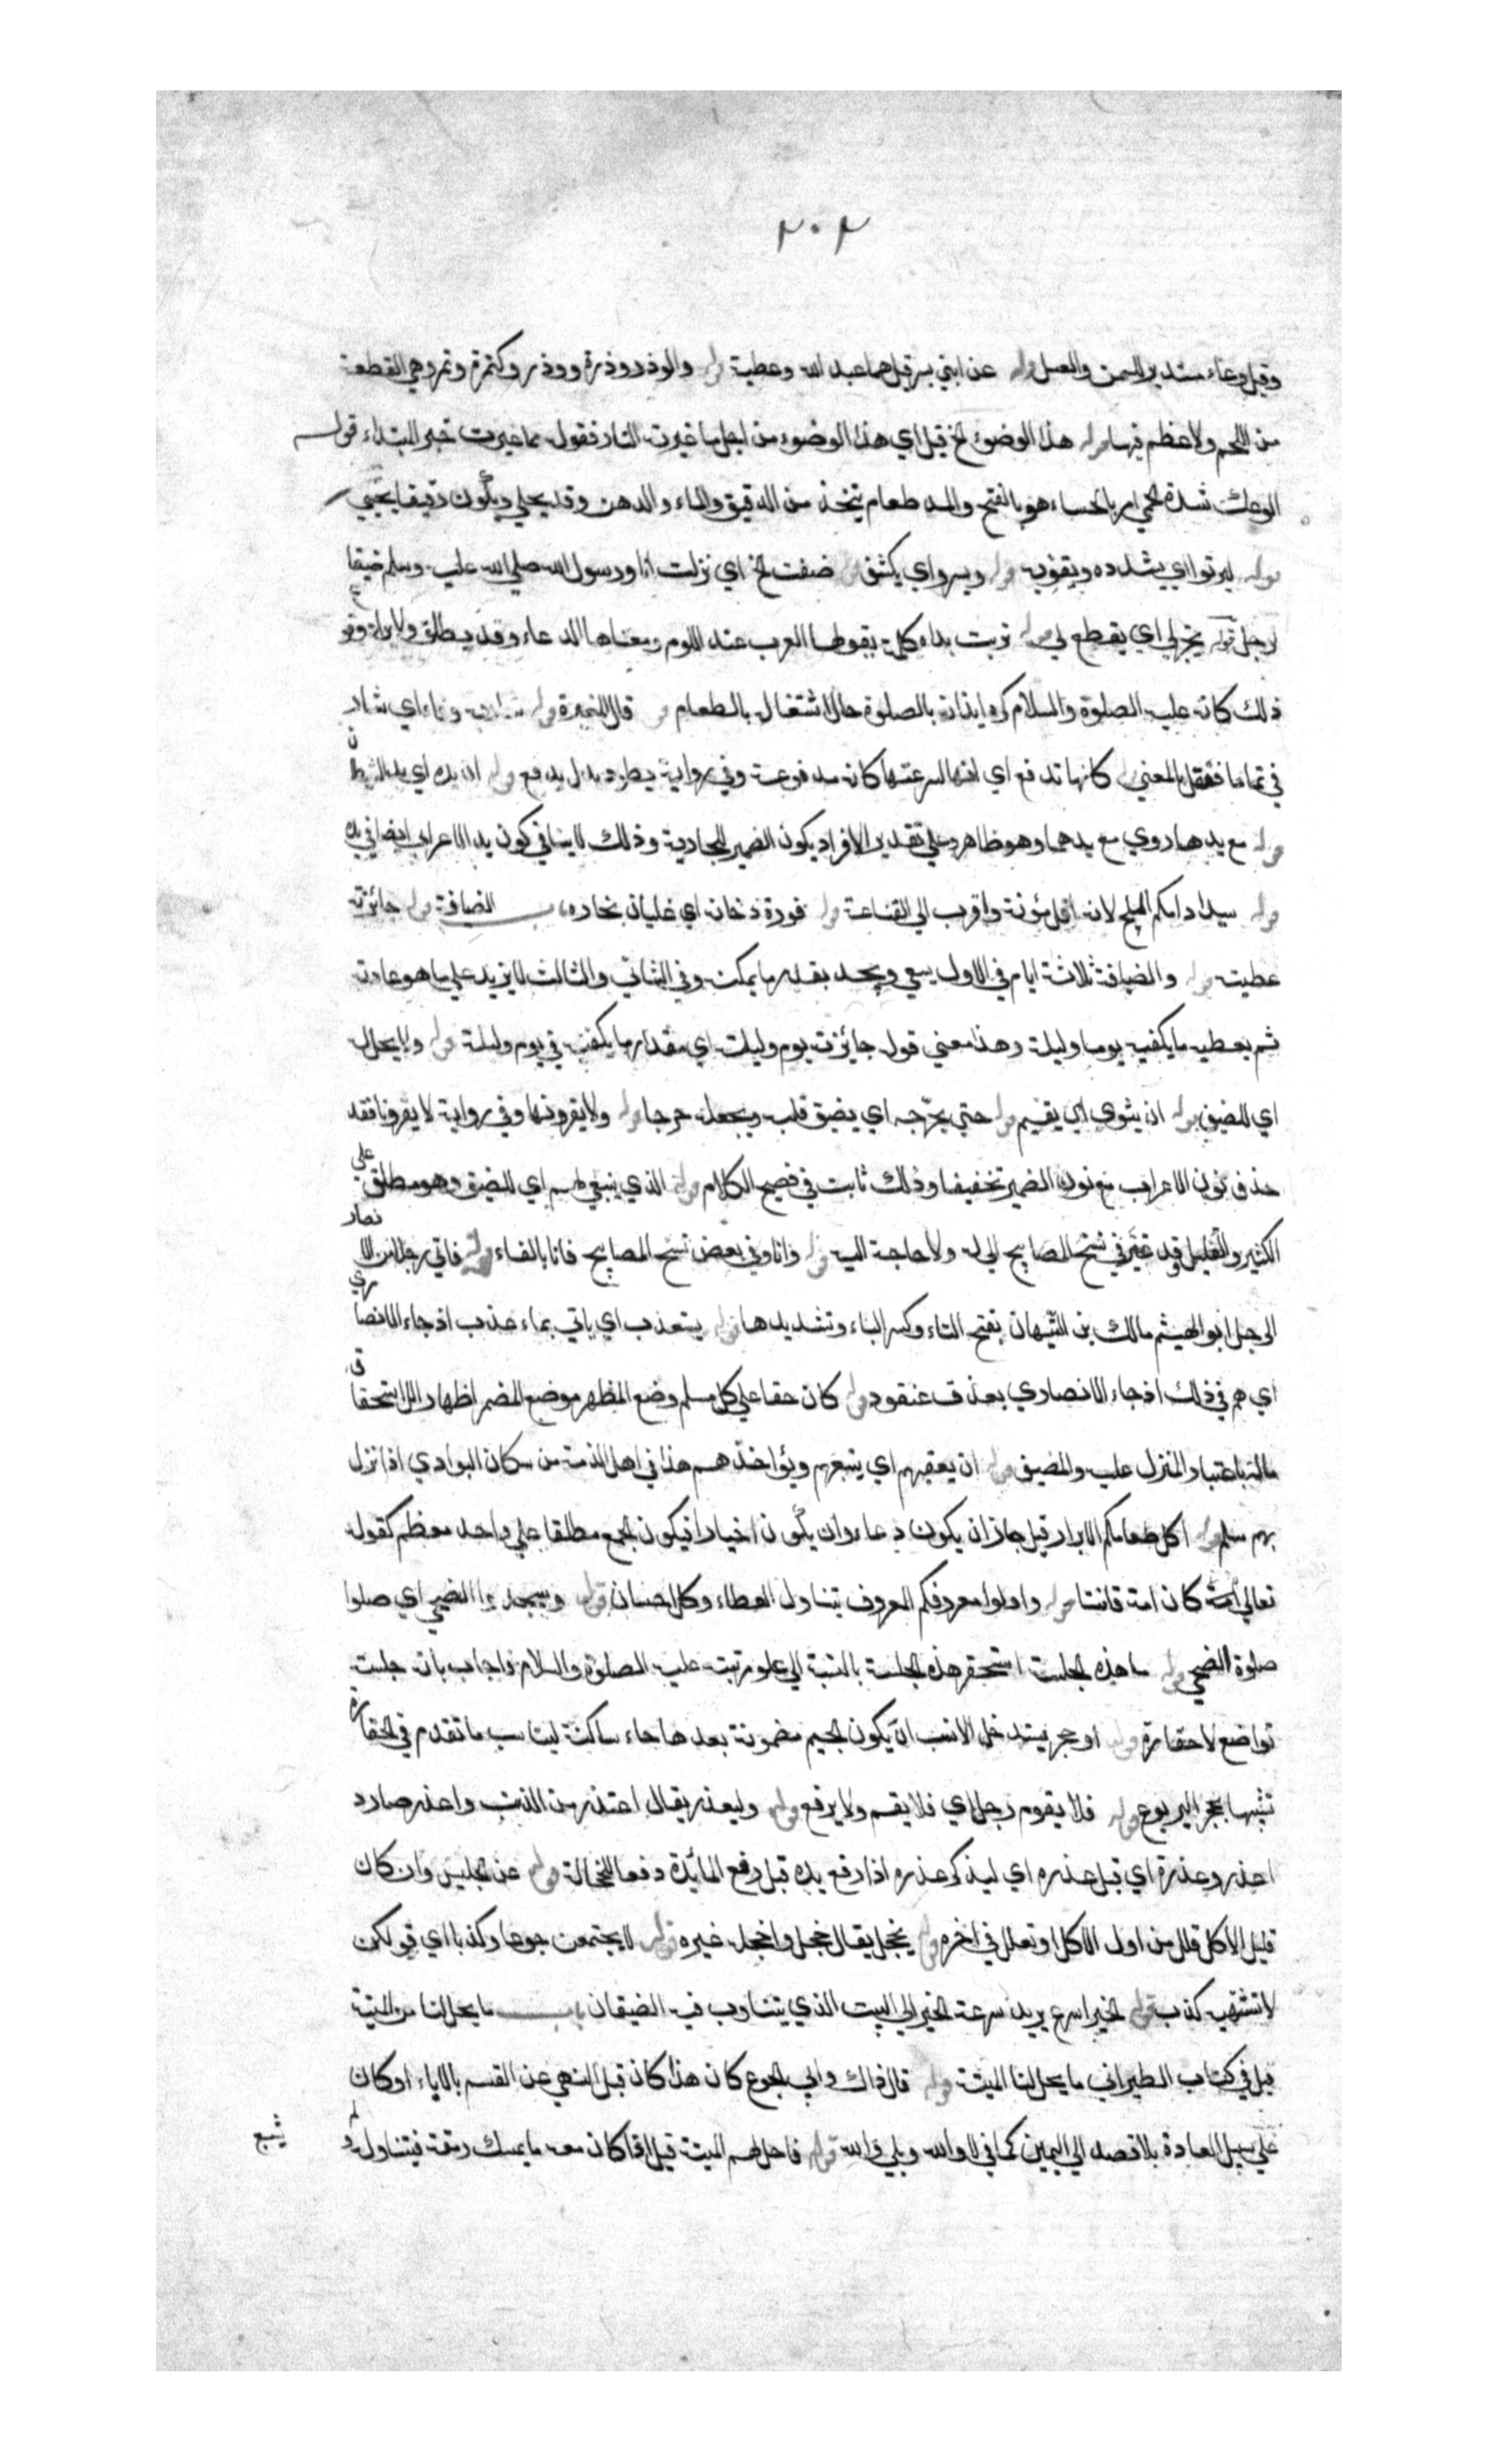 ٢٠٢
وقيل وعاء مستدير للسمن والعسل قوله عن ابني بسر قيل هما عبد الله وعطية قوله والوذر وذرة ووذر وكتمرة وتمر وهي القطعة
من اللحم ولا عظم فيها قوله هذا الوضوء الخ قيل اي هذا الوضوء من اجل ما غيرت النار فقوله مما غيرت خبر المبتداء قوله
الوعك شدة الحمي امر بالحساء هو بالفتح والمد طعام يتخذ من الدقيق والماء والدهن وقد يحلي ويكون رقيقا يحسي
قوله ليرتو اي يشدده ويقويه قوله ويسرو اي يكشف قوله ضفت الخ اي نزلت انا ورسول الله صلي الله عليه وسلم ضيفا
لرجل قوله يحز لي اي يقطع لي قوله تربت يداه كلمة يقولها العرب عند اللوم ومعناها الدعاء وقد يطلق ولا يراد وقو
ذلك كانه عليه الصلوة والسلام كره ايذانه بالصلوة حال الاشتغال بالطعام قوله قال المغيرة قوله شاربه وفاء اي شار
في تماما فنقل بالمعني قوله كانها تدفع اي انها لسرعتها كانه مدفوعة وفي رواية يطرد بدل يدفع قوله ان يده اي يد الشيطان
قوله مع يدها روي مع يدهما وهو ظاهر وعلي تقدير الافراد يكون الضمير للجارية وذلك لا ينافي كون يد الاعرابي ايضا في يده
قوله سيد ادامكم الملح لانه اقل مؤنة واقرب الي القناعة قوله فورة دخانه اي غليان بخاره باب الضيافة قوله جائزته
عطيته قوله والضيافة ثلاثة ايام في الاول يسعي ويجد بقدر ما يمكنه وفي الثاني والثالث لا يزيد علي ما هو عادته
ثم يعطيه ما يكفيه يوما وليلة وهذا معني قوله جايزته يوم وليلة اي مقدار ما يكفيه في يوم وليلة قوله ولا يحل له
اي للضيف قوله ان يثوي اي يقيم قوله حتي يحرّجه اي يضيق قلبه ويجعله حرجا قوله ولا يقروننا وفي رواية لا يقرونا فقد
حذف نون الاعراب مع نون الضمير تخفيفا وذلك ثابت في فصيح الكلام قوله الذي ينبغي لهم اي للضيف وهو مطلق علي
الكثير والقليل وقد غير في نسخ المصابيح الي له ولا حاجة اليه قوله وانا وفي بعض نسخ المصابيح فانا بالفاء قوله فاتي رجلا من الانصار
الرجل ابو الهيثم مالك بن التيهان بفتح التاء وكسر الياء وتشديدها قوله يستعذب اي ياتي بماء عذب اذ جاء الانصاري
اي هم في ذلك اذ جاء الانصاري بعذق عنقود قوله كان حقا علي كل مسلم وضع المظهر موضع المضمر اظهارا لاستحقاق
ماله باعتبار المنزل عليه والمضيف قوله ان يعقبهم اي يتبعهم ويؤاخذهم هذا في اهل الذمة من سكان البوادي اذا نزل
بهم مسلم قوله اكل طعامكم الابرار قيل جاز ان يكون دعاء وان يكون اخبارا فيكون الجمع مطلقا علي واحد معظم كقوله
تعالي كان امة قانتا قوله واولوا معروفكم المعروف يتناول العطاء وكل احسان قوله وسجدوا الضحي اي صلوا
صلوة الضحي قوله ما هذه الجلسة استحقر هذه الجلسة بالنسبة الي علو مرتبته عليه الصلوة والسلام فاجاب بانه جلسة
تواضع لا حقارة قوله او جحر يستدخل الانسب ان يكون الجيم مضمونة بعدها حاء ساكنة ليناسب ما تقدم في الحقارة
تشبيها بجحر اليربوع قوله فلا يقوم رجل اي فلا يقم ولا يرفع قوله وليعذر يقال اعتذر من الذنب واعذر صار ذ
اعذر وعذرة اي قبل عذره اي ليذكر عذره اذا رفع يده قبل رفع المائدة دفعا للخجالة قوله عن جليس وان كان
قليل الاكل قلل من اول الاكل او تعلل في اخره قوله يخجل يقال خجل واخجل غيره قوله لا يجتمعن جوعا وكذبا اي قولكن
لا نشتهيه كذب قوله الخير اسرع يريد سرعة الخير الي البيت الذي يتناوب فيه الضيفان باب ما يحل لنا من الميتة
قيل في كتاب الطبراني ما يحل لنا الميتة قوله قال ذاك وابي الجوع كان هذا كان قبل النهي عن القسم بالاباء او كان
علي سبيل العادة بلا قصد الي اليمين كما في لا والله وبلي والله قوله فاحل لهم الميتة قيل اذا كان معه ما يمسك رمقه فيتناول
يشبع